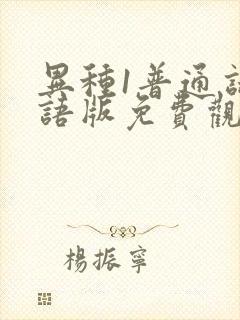 異種1普通話
語版免費觀
楊振寧